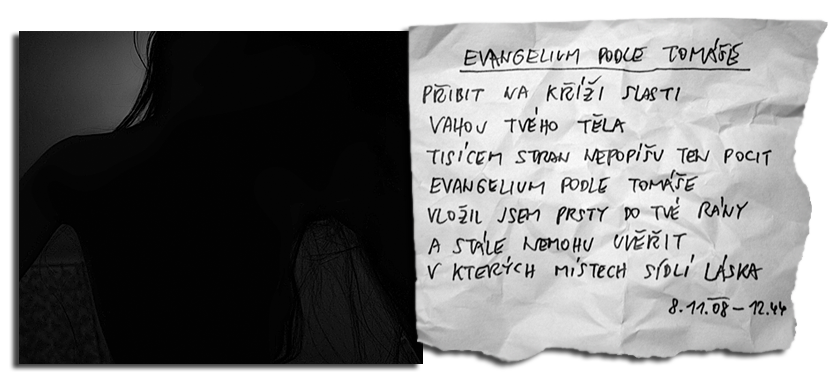 EVANGELIUM PODLE TOMÁŠE
PŘIBIT NA KŘÍŽI SLASTI
VAHOU TVÉHO TĚLA
TISÍCEM STRAN NEPOPÍŠU TEN POCIT
EVANGELIUM PODLE TOMÁŠE
VLOŽIL JSEM PRSTY DO TVÉ RÁNY
A STÁLE NEMOHU UVĚŘIT
V KTERÝCH MÍSTECH SÍDLÍ LÁSKA
8.11.08 – 12.44